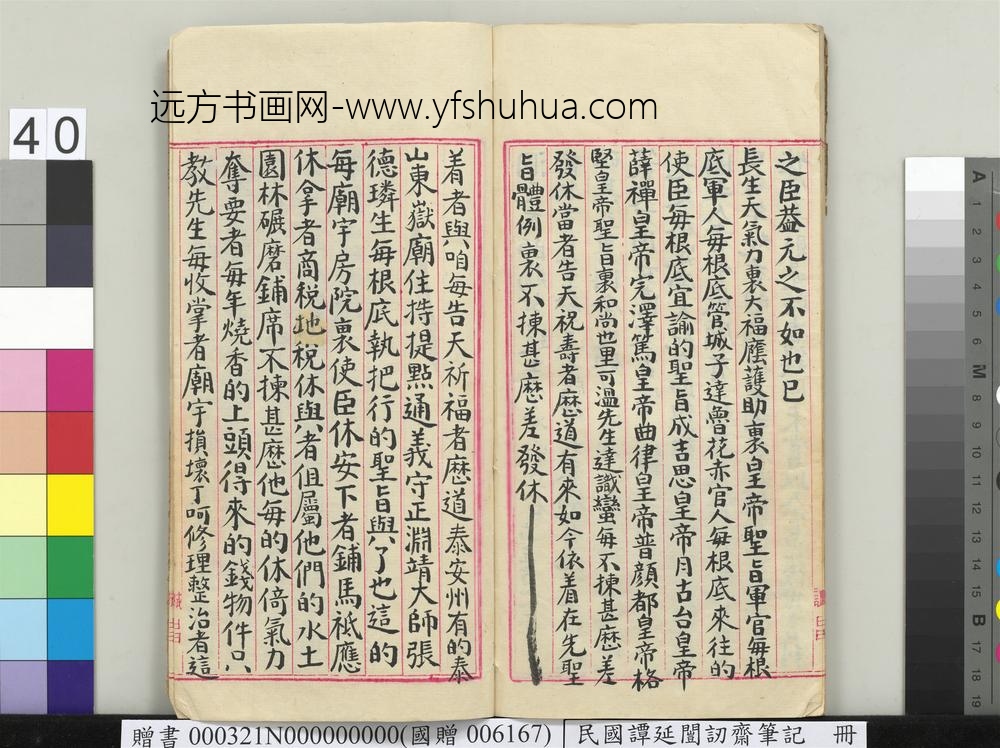 远方书画网-www.yfshuhua.com
40
之臣益元之不如也已
長生天氣力裏大福廕護助裏皇帝聖旨軍官每根
底軍人每根底管城子達魯花赤官人每根底來往的
使臣每根底宣諭的聖旨成吉思皇帝月古台皇帝
薛禪皇帝完澤篤皇帝曲律皇帝普顏都皇帝格
堅皇帝聖旨裏和尚也里可溫先生達識蠻每不揀甚麽差
發休當者告天祝壽者麽道有來如今依着在先聖
旨體例裏不揀甚麽差發休
着者與咱每告天祈福者麽道泰安州有的泰
山東嶽廟住持提點通義守正淵靖大師張
德璘先生每根底執把行的聖旨與了也這的
每廟宇房院裏使臣休安下者鋪馬祗應
休拿者商稅地稅休與者但屬他們的水土
園林碾磨鋪席不揀甚麽他每的休倚氣力
奪要者每年燒香的上頭得來的錢物件只
教先生每收掌者廟宇損壞了呵修理整治者這
A 1 2 3 4 5 6 7 M 8 9 10 11 12 13 14 15 B 16 17 18 19
贈書 000321N000000000(國贈 006167) 民國譚延闓訒齋筆記 冊